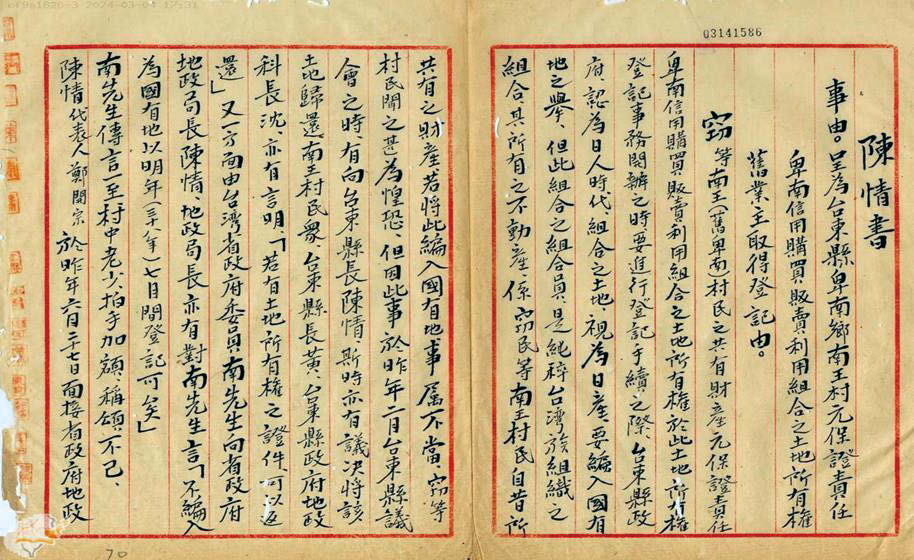 03141586
陳情書
事由。呈為台東縣卑南鄉南王村元保證責任
卑南信用購買販賣利用組合之土地所有權
舊業主取得登記由。
窃等南王(舊卑南)村民之共有財產元保證責任
卑南信用購買販賣利用組合之土地所有權於此土地所有權
登記事務開辦之時、要進行登記手續之際、台東縣政
府、認為日人時代、組合之土地、視為日產、要編入國有
地之舉、但此組合之組合員、是純粹台湾族組織之
組合、其所有之不動產係窃民等南王村民自昔所
共有之財產、若將此編入國有地事属不當、窃等
村民聞之甚為惶恐、但因此事於昨年二月台東縣議
會之時、有向台東縣長陳情、斯時亦有議决將該
土地歸還南王村民眾、台東縣長黃、台東縣政府地政
科長沈、亦有言明、「若有土地所有權之證件、可以返
還」又一方面由台湾省政府委員、南先生向省政府
地政局長陳情、地政局長亦有對南先生言「不編入
為國有地以明年(三八年)七月間登記可矣」
南先生傳言一至村中老少、拍手加額、稱頌不已、
陳情代表人鄭開宗於昨年六月二七日面接省政府地政
70